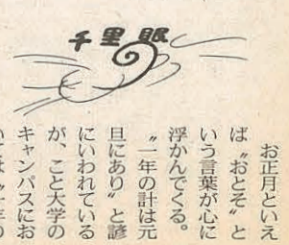 千里眼
お正月といえ
ば〝おとそ〟と
いう言葉が心に
浮かんでくる。
〝一年の計は元
旦にあり〟と諺
にいわれている
が、こと大学の
キャンパスにお